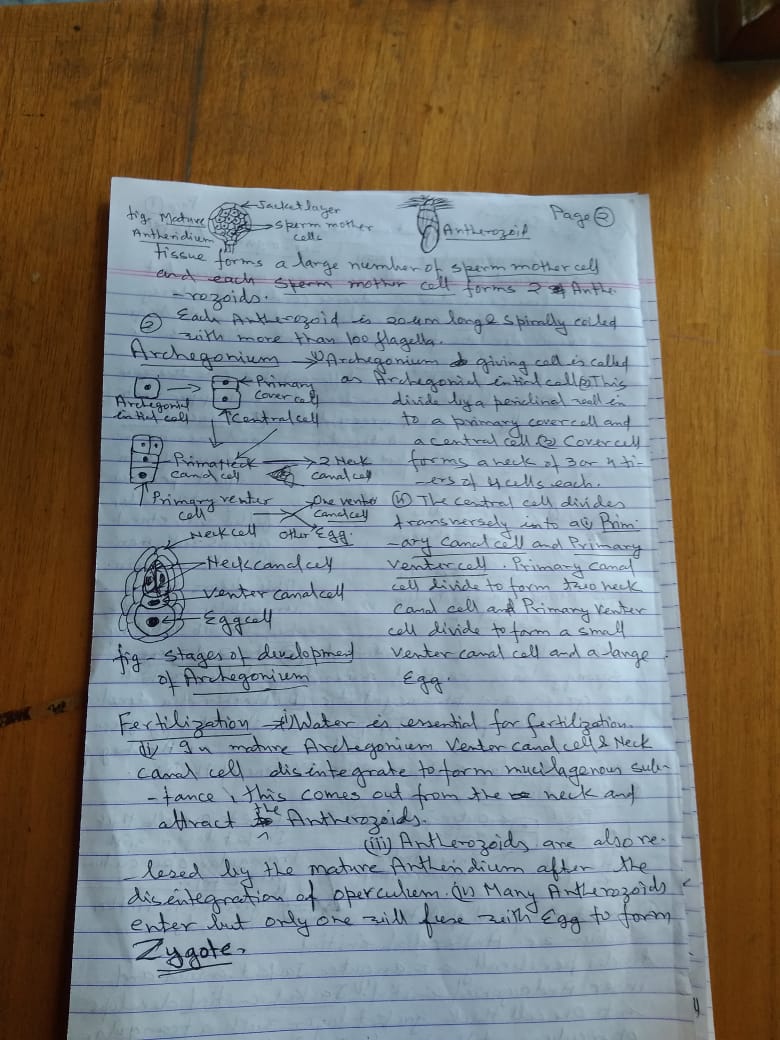 fig. Mature Antheridium
Jacket layer
Sperm mother cells
Antherozoid
Page ②
tissue forms a large number of sperm mother cell
and each sperm mother cell forms 2 Anthe
-rozoids.
② Each Antherozoid is 20um long & spirally coiled
with more than 100 flagella.
Archegonium → (i) Archegonium giving cell is called
as Archegonial initial cell ② This
divide by a periclinal wall in
to a primary cover cell and
a central cell ③ Cover cell
forms a neck of 3 or 4 ti-
ers of 4 cells each.
(4) The central cell divides
transversely into a (i) Prim-
ary canal cell and Primary
venter cell. Primary canal
cell divide to form two neck
canal cell and Primary venter
cell divide to form a small
venter canal cell and a large
Egg.
Archegonial initial cell
Primary cover cell
Central cell
Primary Neck canal cell
2 Neck canal cell
Primary venter cell
One venter canal cell
Other Egg.
Neck cell
Neck canal cell
Venter canal cell
Egg cell
fig - stages of development
of Archegonium
Fertilization → (i) Water is essential for fertilization.
(ii) In mature Archegonium Venter canal cell & Neck
canal cell disintegrate to form mucilagenous sub-
-tance, this comes out from the neck and
attract the Antherozoids.
(iii) Antherozoids are also re-
lesed by the mature Antheridium after the
disentegration of operculum. (iv) Many Antherozoids
enter but only one will fuse with Egg to form
Zygote.